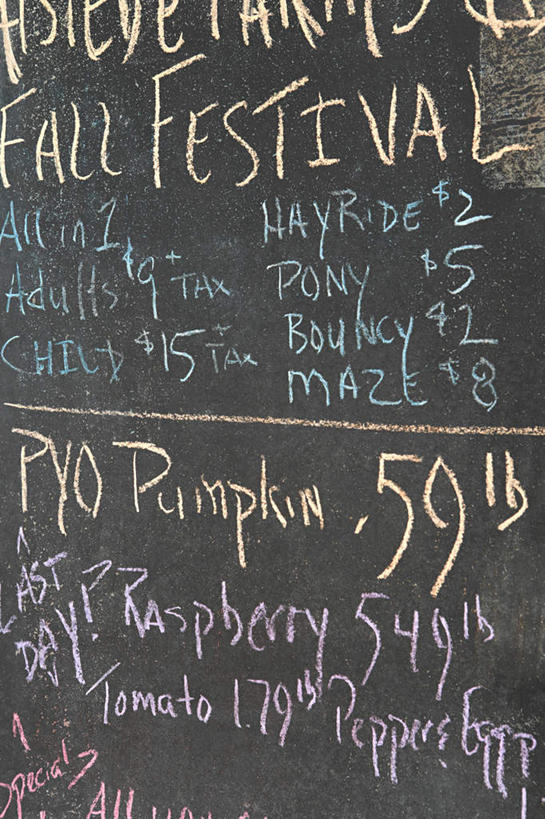 FARMS
FALL FESTIVAL
All in 1
Adults $9 + TAX
CHILD $15 + TAX
HAYRIDE $2
PONY $5
BOUNCY $2
MAZE $8
PYO Pumpkin .59 lb
LAST DAY! Raspberry 549 lb
Tomato 1.79 lb Peppers Eggp
Specials
All you